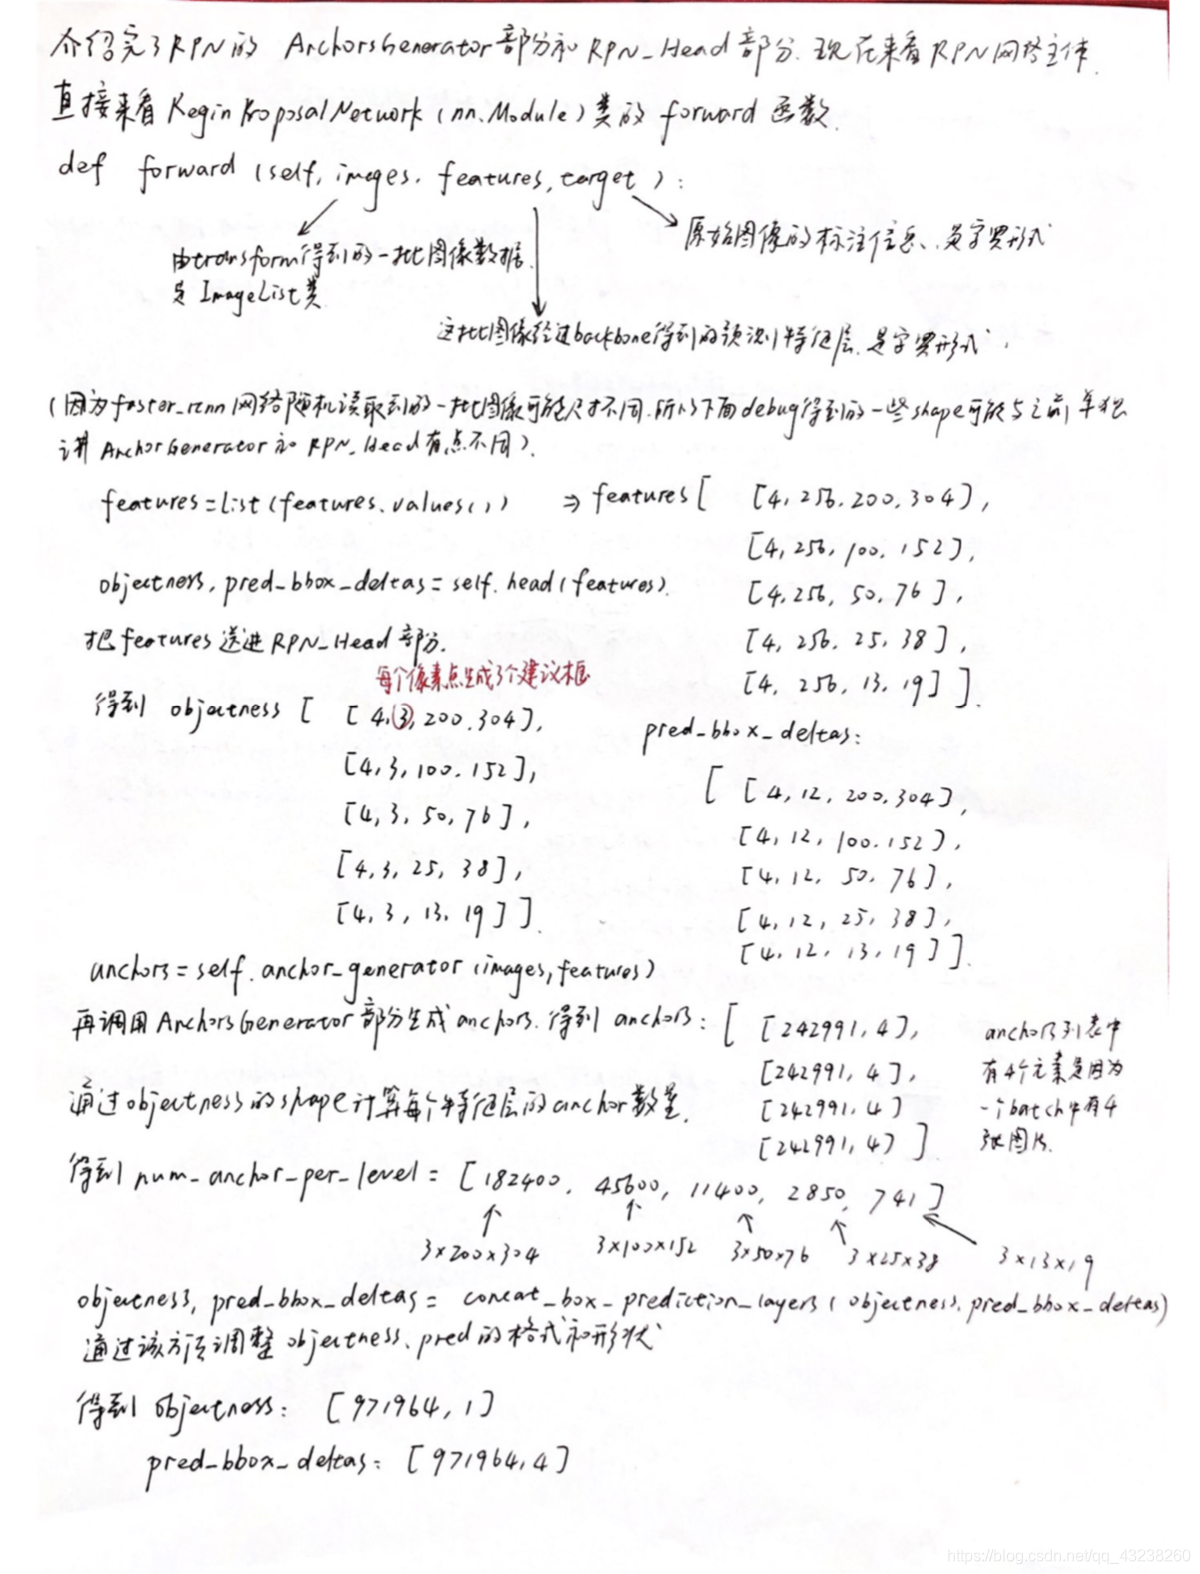 介绍完了RPN的 AnchorsGenerator部分和RPN_Head部分.现在来看RPN网络主体.
直接来看 ReginProposalNetwork(nn.Module)类的 forward 函数.
def forward (self, images, features, target):
原始图像的标注信息、是字典形式
由transform得到的一批图像数据
是 ImageList类
这批图像经过backbone得到的预测特征层.是字典形式.
(因为faster_rcnn网络随机读取到的一批图像可能尺寸不同.所以下面debug得到的一些shape可能与之前单独
讲AnchorGenerator和 RPN_Head有点不同).
features=list(features.values()) ⇒ features[ [4,256,200,304],
[4,256,100,152],
objectness, pred_bbox_deltas=self.head(features).
[4,256,50,76],
把features送进RPN_Head部分.
[4,256,25,38],
[4,256,13,19]].
每个像素点生成3个建议框
得到 objectness [ [4,3,200,304],
[4,3,100,152],
[4,3,50,76],
[4,3,25,38],
[4,3,13,19]].
pred_bbox_deltas:
[ [4,12,200,304],
[4,12,100,152],
[4,12,50,76],
[4,12,25,38],
[4,12,13,19]].
anchors=self.anchor_generator(images,features)
再调用AnchorsGenerator部分生成anchors.得到 anchors: [ [242991,4],
[242991,4],
[242991,4]
[242991,4] ]
anchors列表中
有4个元素是因为
一个batch中有4
张图片.
通过objectness的shape计算每个特征层的anchor数量.
得到num_anchor_per_level = [182400, 45600, 11400, 2850, 741]
3×200×304 3×100×152 3×50×76 3×25×38 3×13×19
objectness, pred_bbox_deltas = concat_box_prediction_layers(objectness,pred_bbox_deltas)
通过该方法调整objectness、pred的格式和形状
得到 objectness: [971964,1]
pred_bbox_deltas: [971964,4]
https://blog.csdn.net/qq_43238260